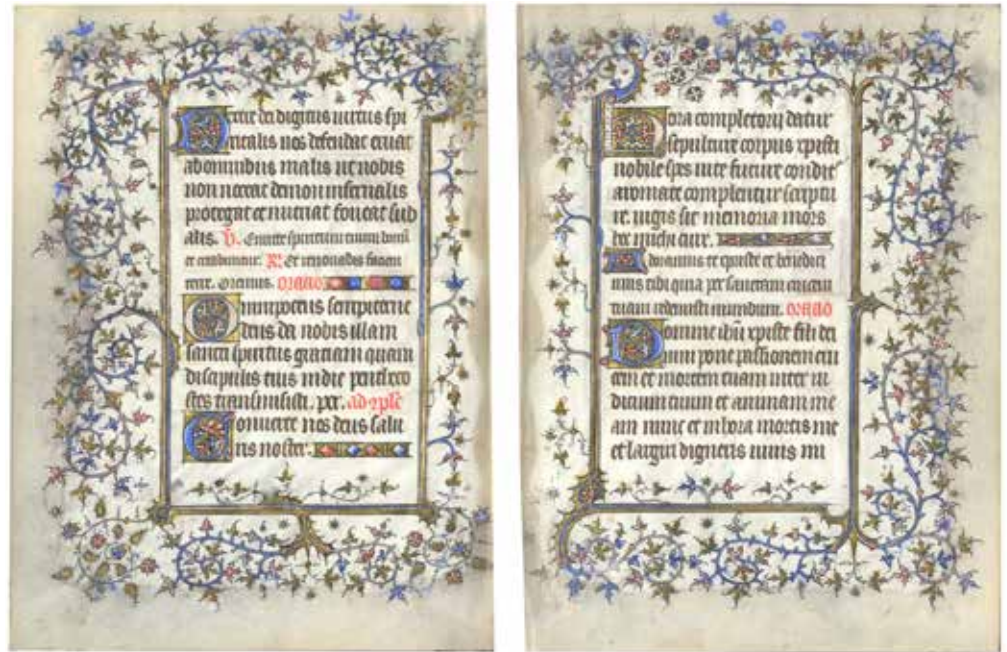 Dextre dei digitus virtus spi
ritalis nos defendat eruat
ab omnibus malis ut nobis
non noceat demon infernalis
protegat et nutriat foveat sub
alis. V. Emitte spiritum tuum
et creabuntur. R. Et renovabis faciem
terre. Oremus. oratio
Omnipotens sempiterne
deus da nobis illam
sancti spiritus gratiam quam
discipulis tuis in die pentheco
stes transmisisti. per. ad ꝯple
Converte nos deus salu
ris noster.
Hora completorii datur
sepulture corpus xpisti
nobile spes vite future condit
aromate complentur scriptu
re iugis sit memoria mors
hec michi cure.
Adoramus te xpiste et benedici
mus tibi quia per sanctam crucem
tuam redemisti mundum. oratio
Domine ihu xpiste fili dei
vivi pone passionem cru
cem et mortem tuam inter iu
dicium tuum et animam me
am nunc et in hora mortis me
et largiri digneris vivis mi